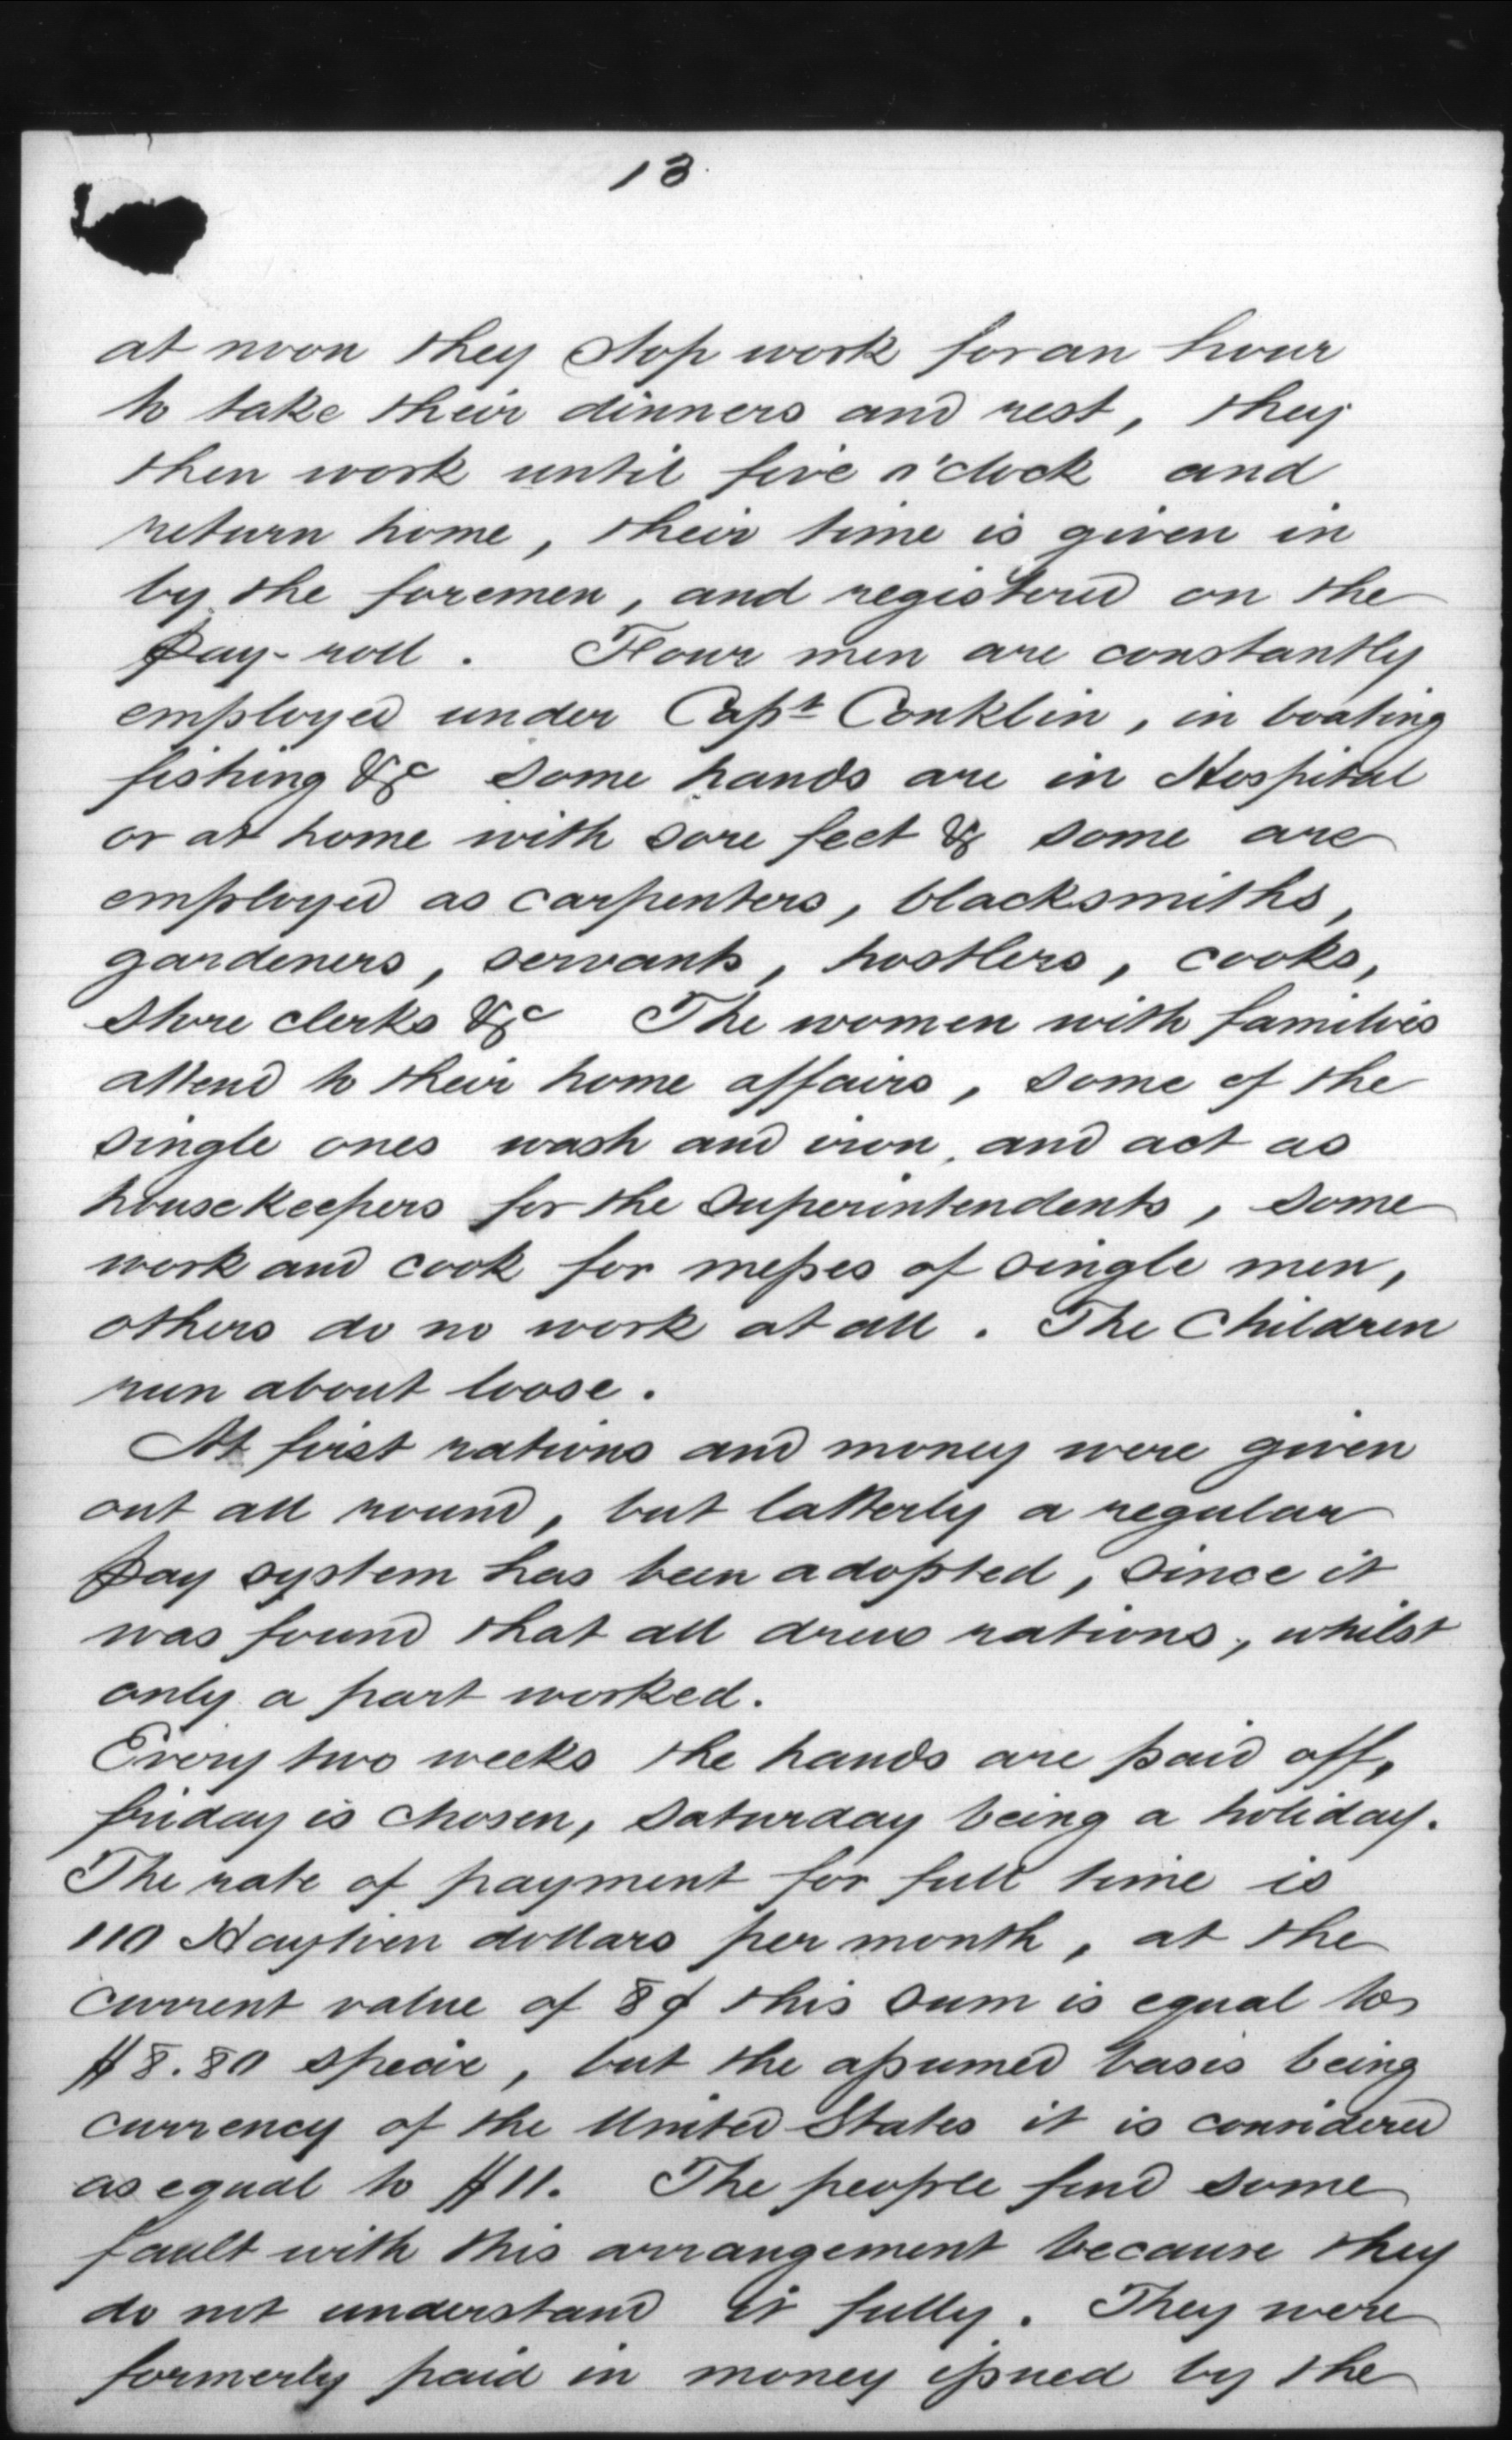 13.
at noon they stop work for an hour
to take their dinners and rest, they
then work until five o'clock and
return home, their time is given in
by the foremen, and registered on the
pay-roll. Four men are constantly
employed under Capt Conklin, in boating
fishing &c some hands are in Hospital
or at home with sore feet & some are
employed as carpenters, blacksmiths,
gardeners, servants, hostlers, cooks,
store clerks &c The women with families
attend to their home affairs, some of the
single ones wash and iron, and act as
housekeepers for the superintendents, some
work and cook for messes of single men,
others do no work at all. The Children
run about loose.
At first rations and money were given
out all round, but latterly a regular
pay system has been adopted, since it
was found that all drew rations, whilst
only a part worked.
Every two weeks the hands are paid off,
friday is chosen, saturday being a holiday.
The rate of payment for full time is
110 Haytien dollars per month, at the
current value of 8¢ this sum is equal to
$8.80 specie, but the assumed basis being
currency of the United States it is considered
as equal to $11. The people find some
fault with this arrangement because they
do not understand it fully. They were
formerly paid in money issued by the